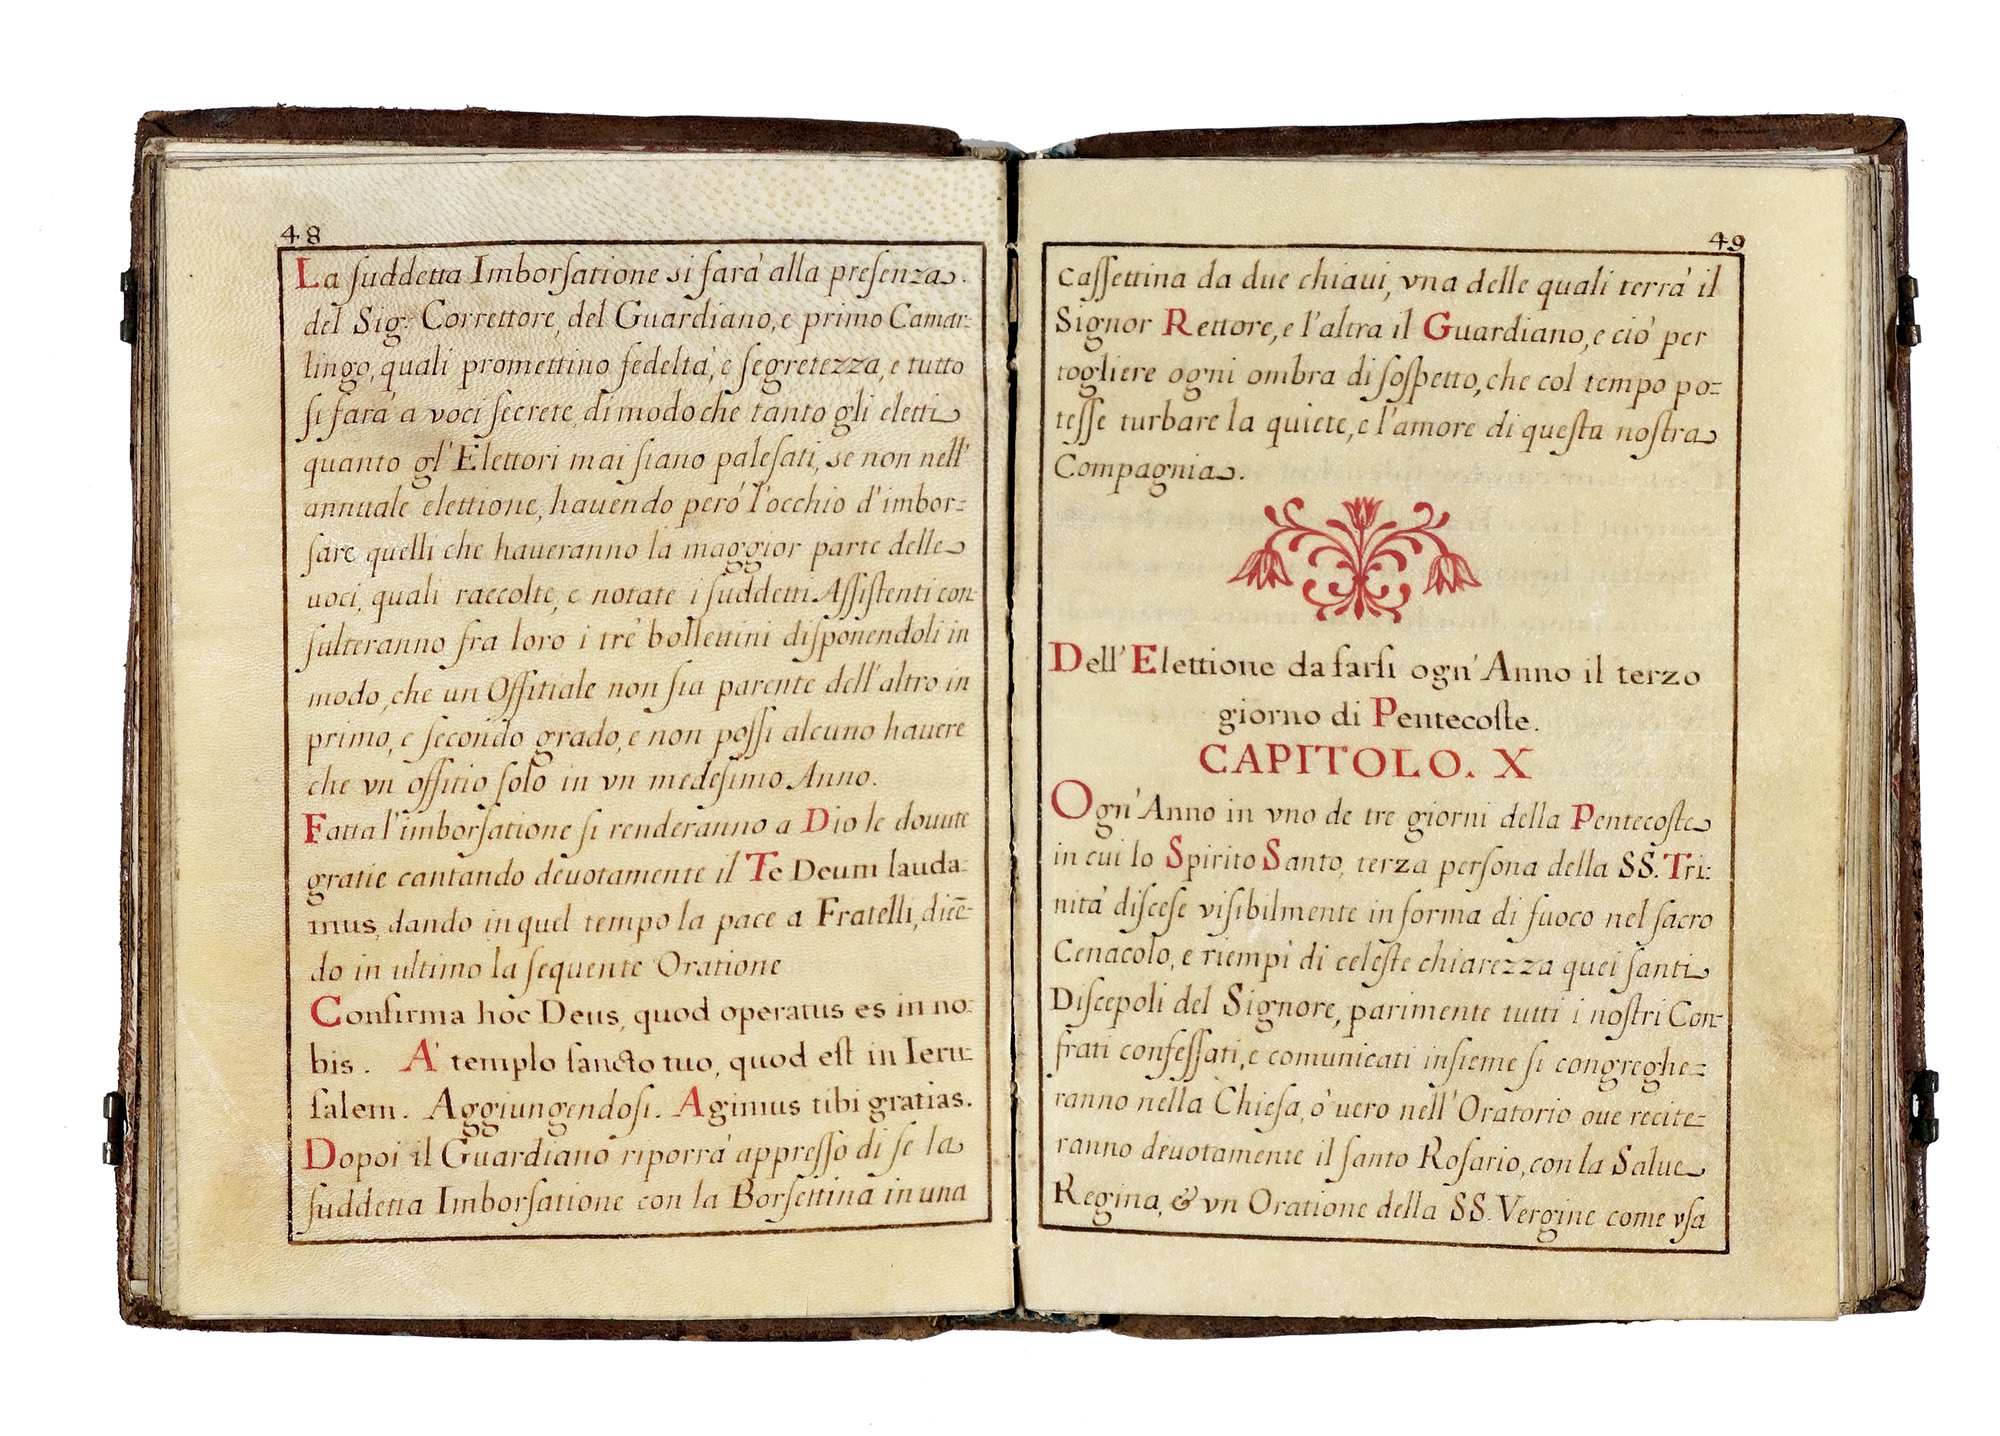 48
La suddetta Imborsatione si farà alla presenza.
del Sig.r Correttore, del Guardiano, e primo Camar=
lingo, quali promettino fedeltà, e segretezza, e tutto
si farà a voci secrete, di modo che tanto gli eletti
quanto gl'Elettori mai siano palesati, se non nell'
annuale elettione, hauendo però l'occhio d'imbor=
sare quelli che haueranno la maggior parte delle
uoci, quali raccolte, e notate i suddetti Assistenti con=
sulteranno fra loro i trè bollettini disponendoli in
modo, che un Offitiale non sia parente dell'altro in
primo, e secondo grado, e non possi alcuno hauere
che vn offitio solo in vn medesimo Anno.
Fatta l'imborsatione si renderanno a Dio le douute
gratie cantando deuotamente il Te Deum lauda=
mus, dando in quel tempo la pace a Fratelli, dicē=
do in ultimo la sequente Oratione
Confirma hoc Deus, quod operatus es in no=
bis. A' templo sancto tuo, quod est in Ieru=
salem. Aggiungendosi. Agimus tibi gratias.
Dopoi il Guardiano riporrà appresso di se la
suddetta Imborsatione con la Borsettina in una
49
cassettina da due chiaui, vna delle quali terrà il
Signor Rettore, e l'altra il Guardiano, e ciò per
togliere ogni ombra di sospetto, che col tempo po=
tesse turbare la quiete, e l'amore di questa nostra
Compagnia.
Dell'Elettione da farsi ogn'Anno il terzo
giorno di Pentecoste.
CAPITOLO. X
Ogn'Anno in vno de tre giorni della Pentecoste
in cui lo Spirito Santo, terza persona della SS. Tri=
nità discese visibilmente in forma di fuoco nel sacro
Cenacolo, e riempì di celeste chiarezza quei santi
Discepoli del Signore, parimente tutti i nostri Con=
frati confessati, e comunicati insieme si congreghe=
ranno nella Chiesa, ò uero nell'Oratorio oue recite=
ranno deuotamente il santo Rosario, con la Salue
Regina, & vn Oratione della SS. Vergine come vsa